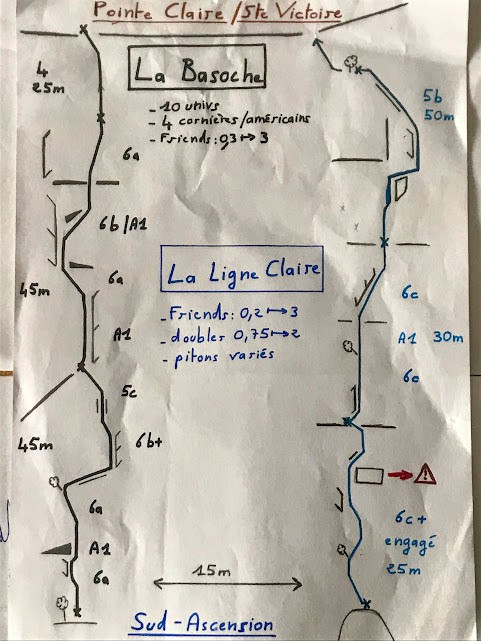 Pointe Claire / Ste Victoire
La Basoche
- 10 univs
- 4 cornières/américains
- Friends : 0,3 ↦ 3
4
25m
6a
6b/A1
6a
45m
A1
5c
45m
6b+
6a
A1
6a
La Ligne Claire
- Friends : 0,2 ↦ 3
- doubles 0,75 ↦ 2
- pitons variés
5b
50m
6c
A1 30m
6c
!
6c+
engagé
25m
15m
Sud-Ascension